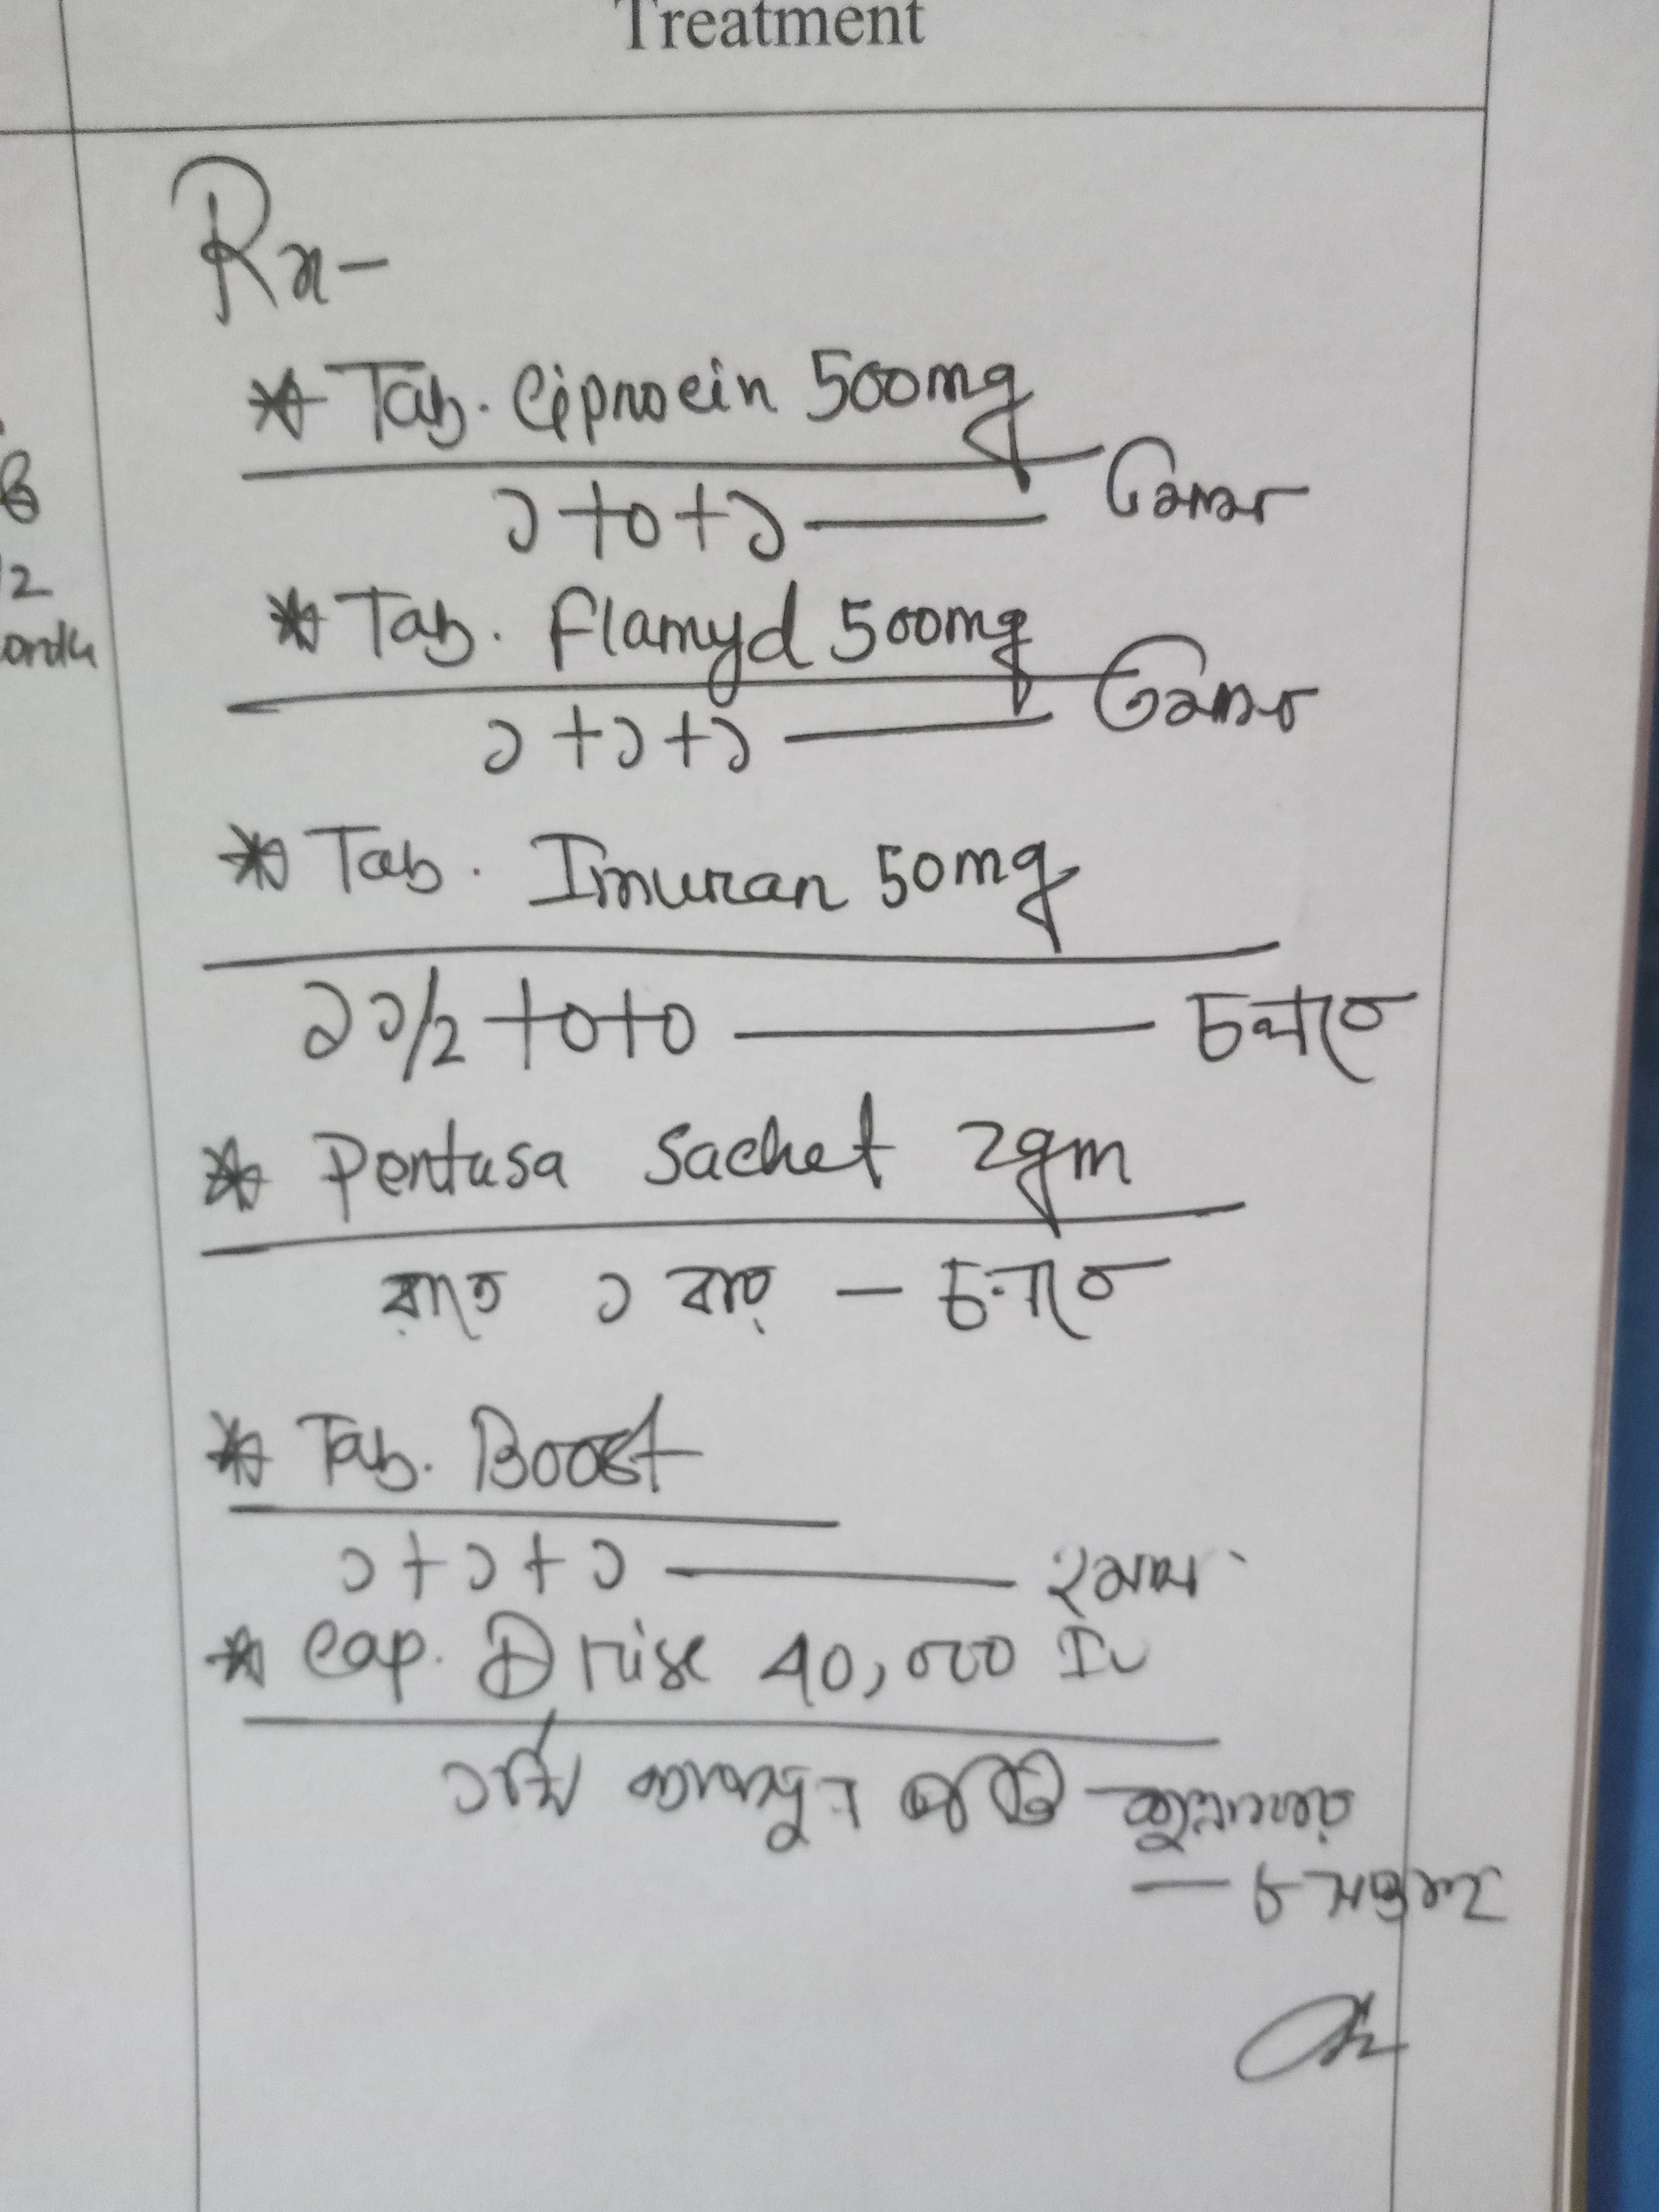 Treatment
Rx-
* Tab. Ciprocin 500mg
১+০+১ —
* Tab. Flamyd 500mg
১+১+১ —
* Tab. Imuran 50mg
২ ১/২ +০+০ — চলবে
* Pentasa Sachet 2gm
রাতে ১ বার — চলবে
* Tab. Boost
১+১+১ — ২ মাস
* Cap. D rise 40,000 IU
১টি ক্যাপসুল প্রতি
— ৮ সপ্তাহ